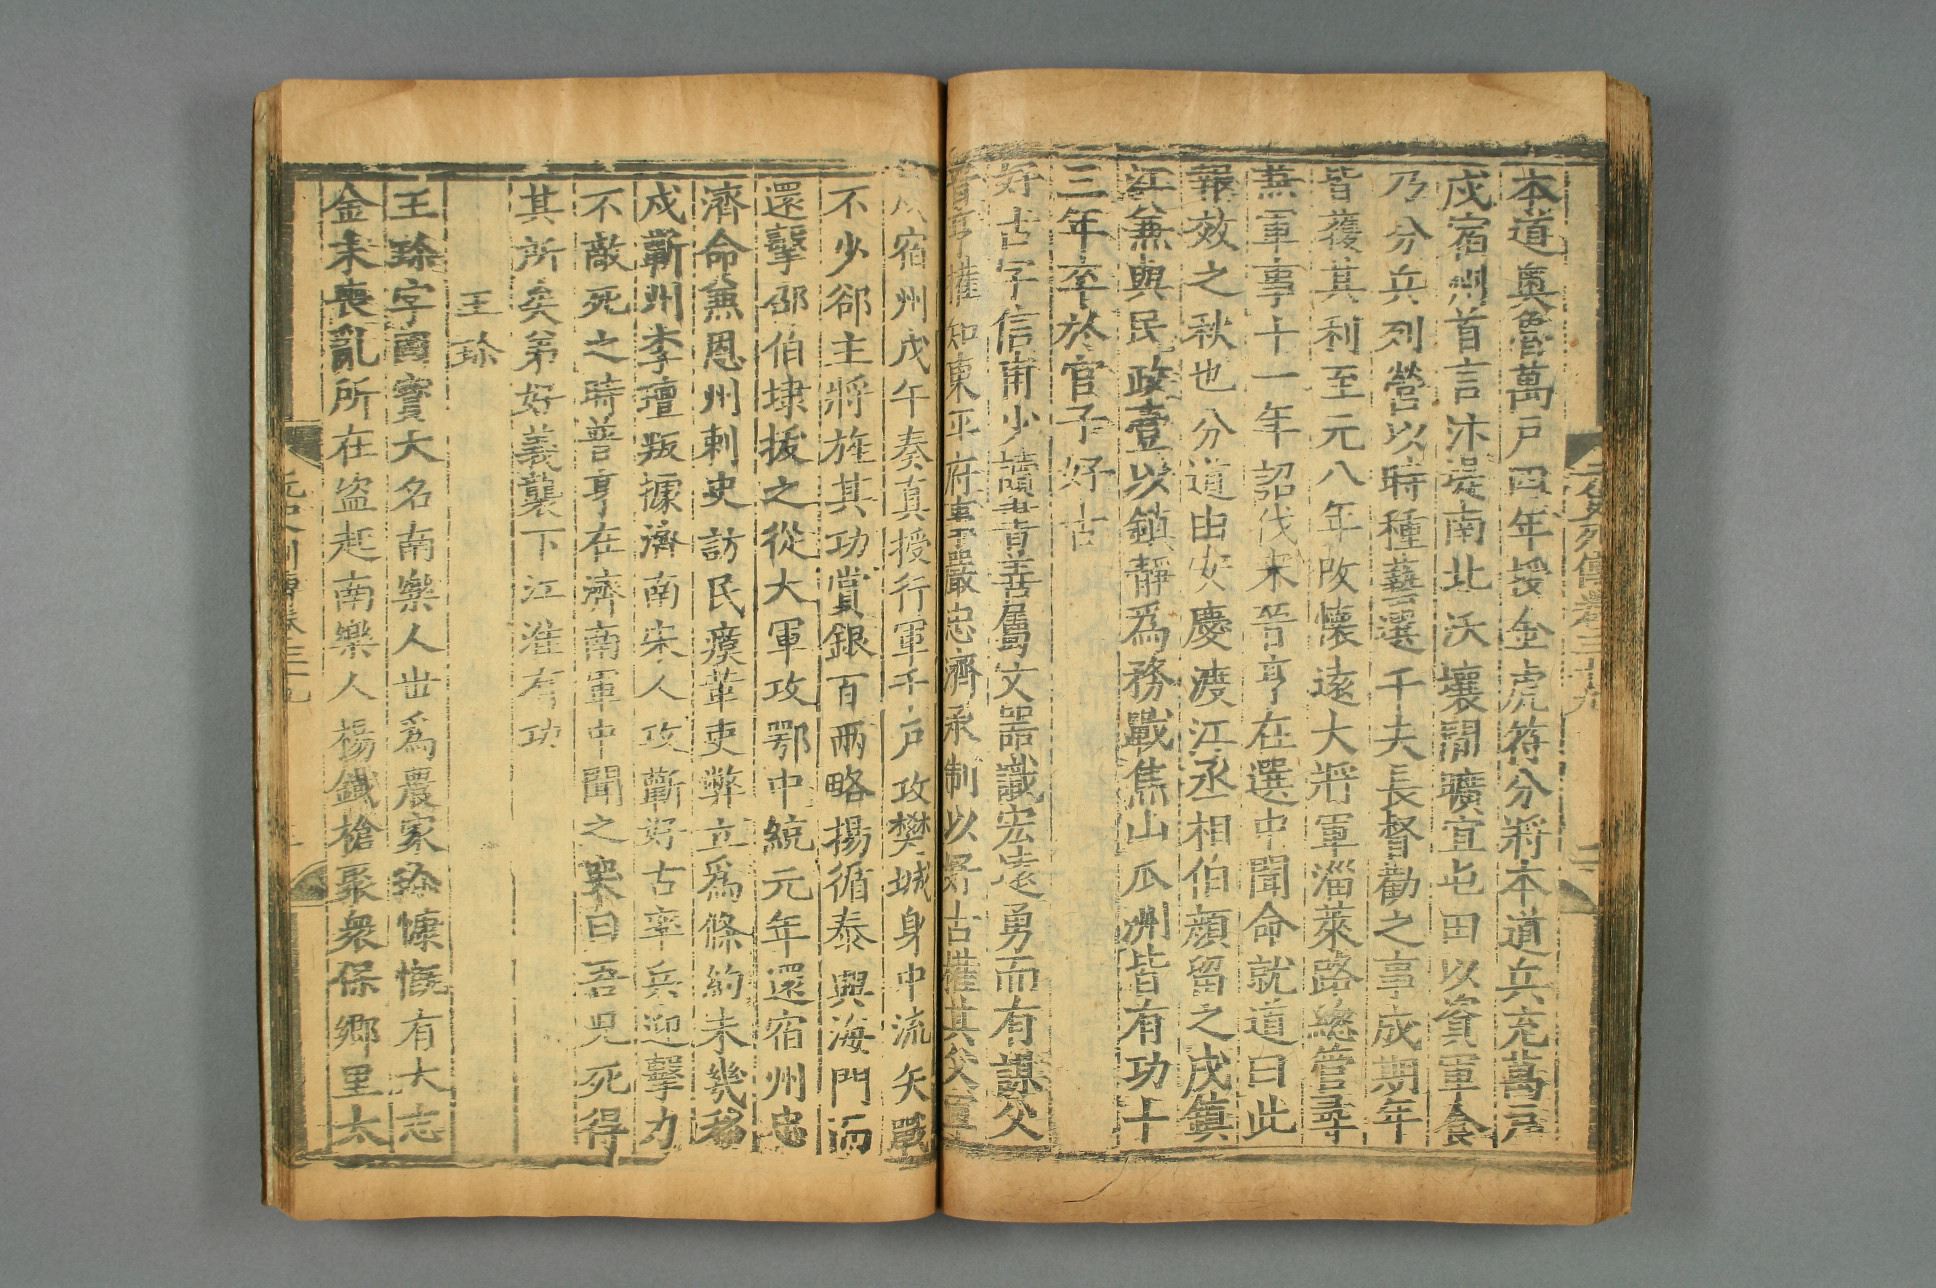 元史列傳卷三十九
二
本道奧魯萬戶四年授金虎符分將本道兵充萬戶
戍宿州首言汴堤南北沃壤閒曠宜屯田以資軍食
乃分兵列營以時種藝選千夫長督勸之事成期年
皆獲其利至元八年改懷遠大將軍淄萊路總管尋
兼軍事十一年詔伐宋晉亨在選中聞命就道曰此
報效之秋也分道由安慶渡江丞相伯顏留之戍鎮
江兼與民政壹以鎮靜爲務戰焦山瓜洲皆有功十
三年卒於官子好古
好古字信甫少讀書善屬文器識宏遠勇而有謀父
晉亨權知東平府事嚴忠濟承制以好古權其父軍
戍宿州戊午奏真授行軍千戶攻樊城身中流矢戰
不少郤主將旌其功賞銀百兩略揚循泰興海門而
還擊邵伯埭拔之從大軍攻鄂中統元年還宿州忠
濟命兼恩州刺史訪民瘼革吏弊立爲條約未幾移
戍蘄州李璮叛據濟南宋人攻蘄好古率兵迎擊力
不敵死之時晉亨在濟南軍中聞之哭曰吾兒死得
其所矣弟好義襲下江淮有功
王珍
王珍字國寶大名南樂人世爲農家珍慷慨有大志
金末喪亂所在盜起南樂人楊鐵槍聚衆保鄉里太
元史列傳卷三十九